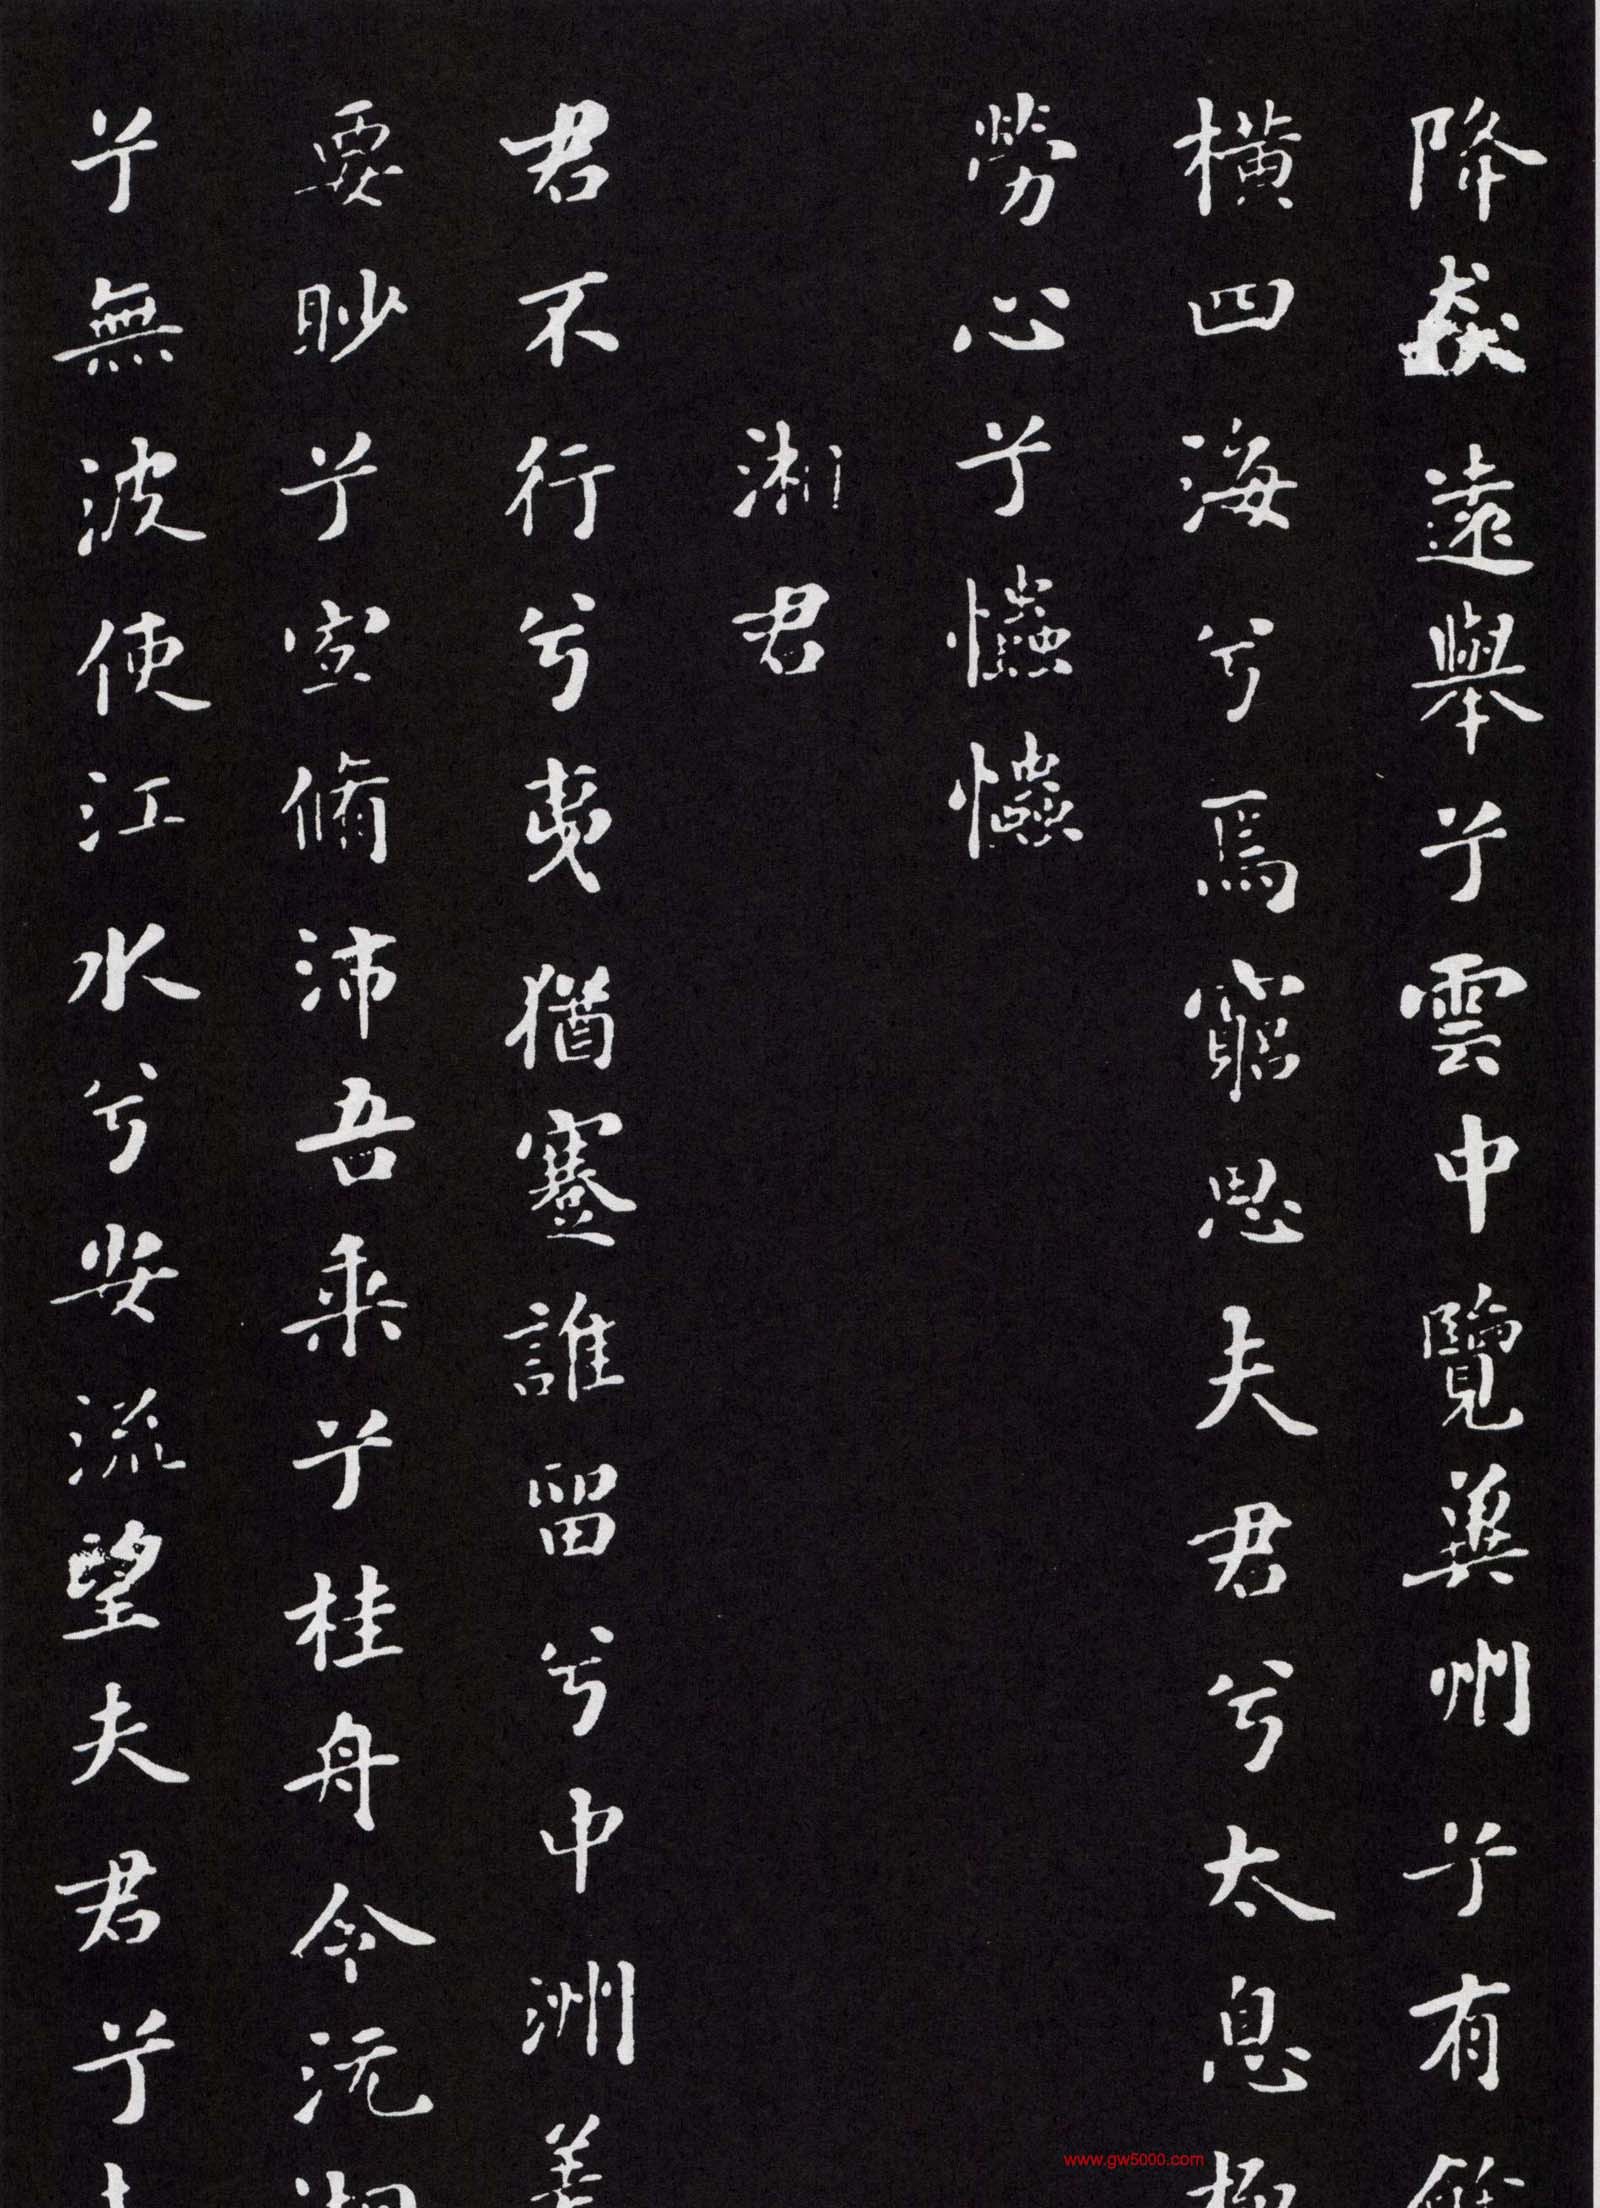 降猋遠舉兮雲中覽冀州兮有餘
橫四海兮焉窮思夫君兮太息極
勞心兮懺懺
湘君
君不行兮夷猶蹇誰留兮中洲美
要眇兮宜脩沛吾乘兮桂舟令沅湘
兮無波使江水兮安流望夫君兮未
www.gw5000.com